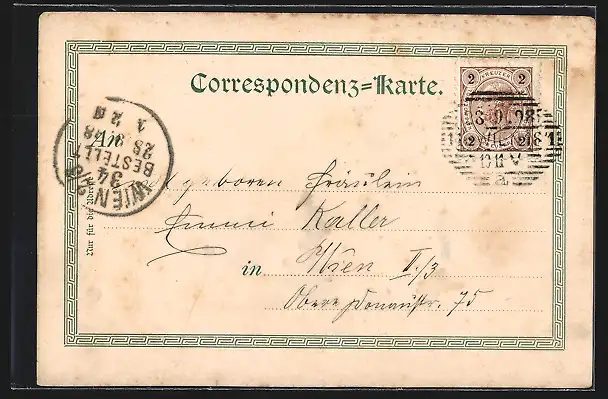 Correspondenz=Karte.
2 KREUZER 2
2 2
8.9.98
WIEN
34
BESTELLT
28
An
Wohlgeboren Fräulein
Emmi Kaller
in Wien II./3
Obere Donaustr. 75
Nur für die Adresse